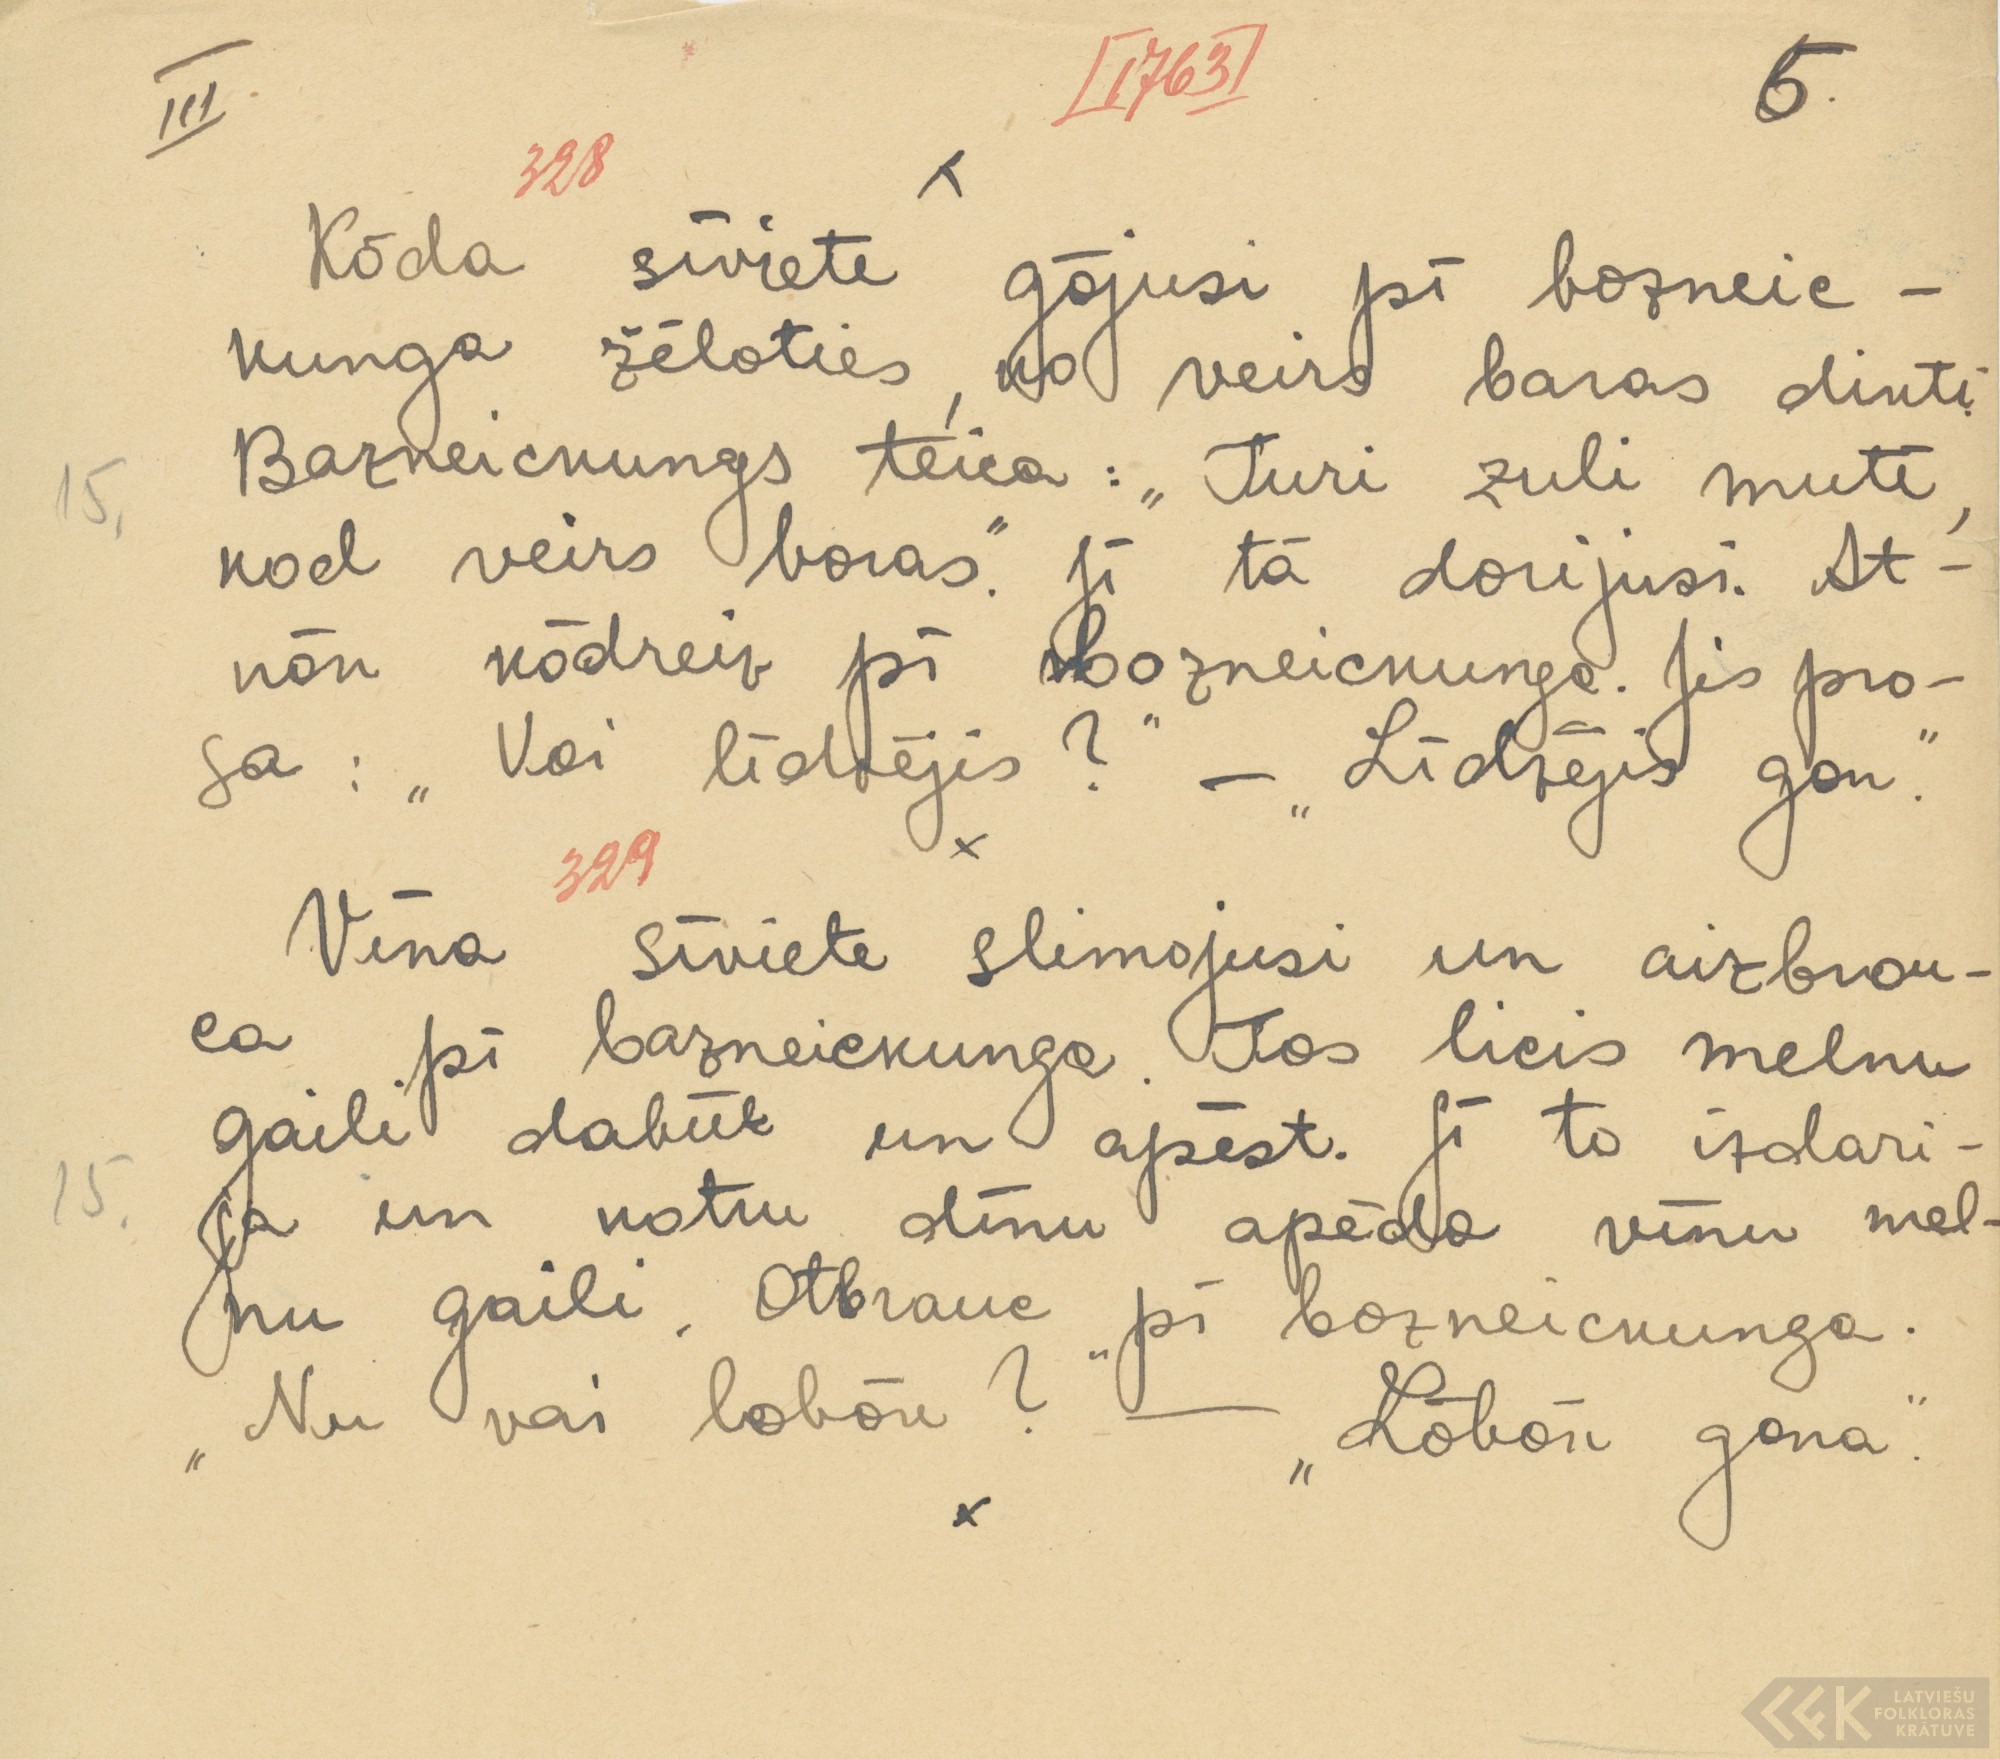 III [1763] 5.
328
Kōda sīviete gōjusi pī bozneic-
kunga žēloties, ko veirs baras dikti.
Bazneickungs teica: „Turi zuli mutē,
kod veirs boras”. Jī tā dorijusi. At-
nōk kōdreiz pī bozneickunga. Jis pro-
sa: „Voi līdzējis?” – „Līdzējis gon”.
x
329
Vīna sīviete slimojusi un aizbrau-
ca pī bazneickunga. Tas licis melnu
gaili dabūt un apēst. Jī to izdari-
ja un kotru dīnu apēda vīnu mel-
nu gaili. Otbrauc pī bozneickunga.
„Nu vai lobōk?” — „Lōbōk gona”.
x
15.
15.
LATVIEŠU
FOLKLORAS
KRĀTUVE